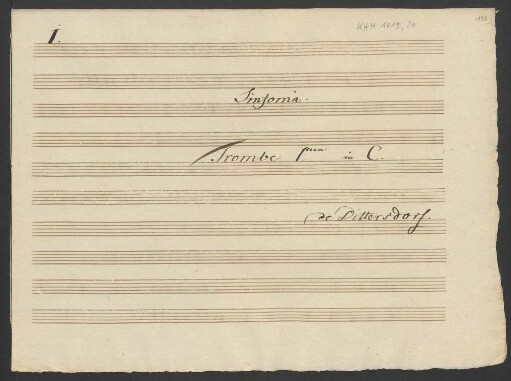 I.
KHM 1019, 21
193
Sinfonia.
Trombe pma in C.
de Dittersdorf.